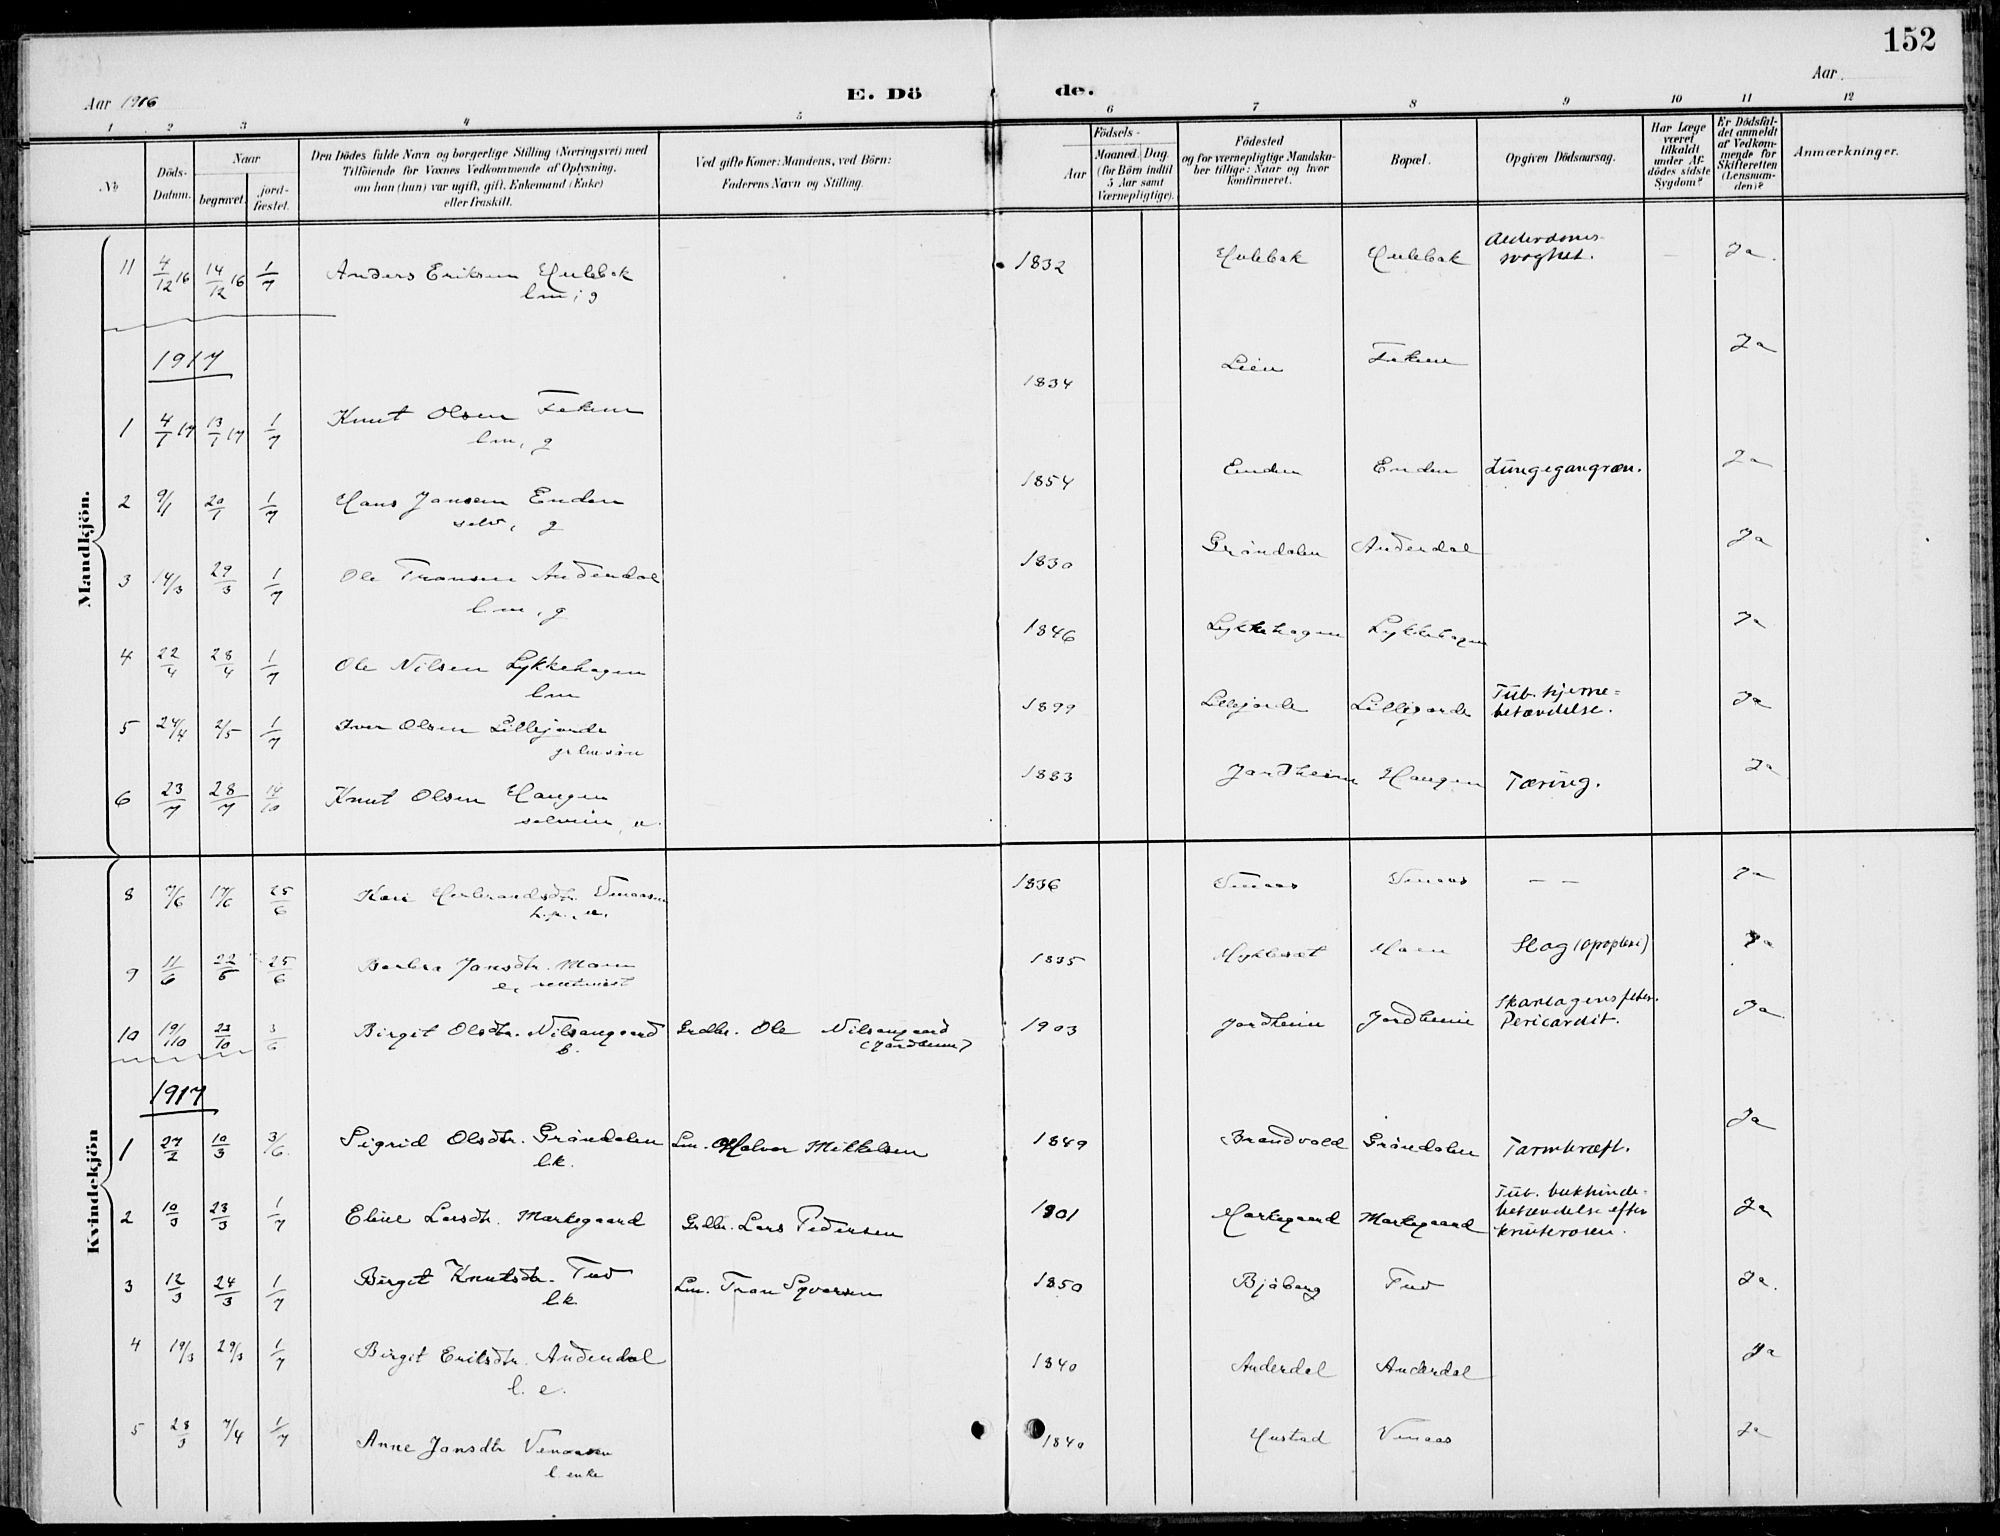 152
Aar 1916
E. Dö de.
Aar
1 2 3 4 5 6 7 8 9 10 11 12
No
Döds-
Datum.
Naar
begravet.
jord-
fæstet.
Den Dödes fulde Navn og borgerlige Stilling (Næringsvei) med
Tilföiende for Voxnes Vedkommende af Oplysning,
om han (hun) var ugift, gift, Enkemand (Enke)
eller fraskilt.
Ved gifte Koner: Mandens, ved Börn:
Faderens Navn og Stilling.
Födsels-
Aar
Maaned. Dag.
(for Börn indtil
5 Aar samt
Værnepligtige).
Födested
og for værnepligtige Mandska-
ber tillige: Naar og hvor
konfirmeret.
Bopæl.
Opgiven Dödsaarsag.
Har Læge
været
tilkaldt
under Af-
dödes sidste
Sygdom?
Er Dödsfal-
det anmeldt
af Vedkom-
mende for
Skifteretten
(Lensman-
den)?
Anmærkninger.
Mandkjön.
11 4/12 16 14/12 16 1/7 Anders Eriksen Hulebak 1832 Hulebak Hulebak Alderdoms- Ja.
lm, g svaghet.
1917
1 4/1 17 13/1 17 1/7 Knut Olsen 1834 Lien Ja
lm, g
2 9/1 20/1 1/7 Hans Jansen Enden 1854 Enden Enden Lungegangræn. Ja
selv, g
3 14/3 29/3 1/7 Ole Transen Anderdal 1830 Gröndalen Anderdal Ja
lm, g
4 22/4 28/4 1/7 Ole Nilsen Lykkehagen 1846 Lykkehagen Lykkehagen Ja
lm
5 24/4 2/5 1/7 Iver Olsen Lillejorde 1899 Lillejorde Lillejorde Tub. hjerne- Ja
betændelse.
6 23/7 28/7 14/10 Knut Olsen Haugen 1883 Jordheim Haugen Tæring. Ja
Kvindekjön
8 7/6 17/6 25/6 Kari Herbrandsdtr. Venaasen 1836 Venaas Venaas — — Ja
9 11/6 22/6 25/6 Barbra Jansdtr. Moen 1835 Mykleset Moen Slag (apoplexi) Ja
10 19/10 23/10 3/6 Birgit Olsdtr. Nilsangaard Grdbr. Ole Nilsangaard 1903 Jordheim Jordheim Skarlagensfeber. Ja
b. (Jordheim) Pericardit.
1917
1 27/2 10/3 3/6 Sigrid Olsdtr. Gröndalen Lm. Halvor Mikkelsen 1849 Brandvold Gröndalen Tarmkræft. Ja
lk.
2 10/3 23/3 1/7 Eline Larsdtr. Markegaard Grdbr. Lars Pedersen 1901 Markegaard Markegaard Tub. bukhinde- Ja
betændelse efter
knuterosen.
3 12/3 24/3 1/7 Birgit Knutsdtr. Tuv Lm. Tran Syversen 1850 Bjöberg Tuv Ja.
lk.
4 19/3 29/3 1/7 Birgit Eriksdtr. Anderdal 1840 Anderdal Anderdal Ja
l. e.
5 28/3 7/4 1/7 Anne Jansdtr Venaasen 1840 Hustad Venaas Ja
l. enke